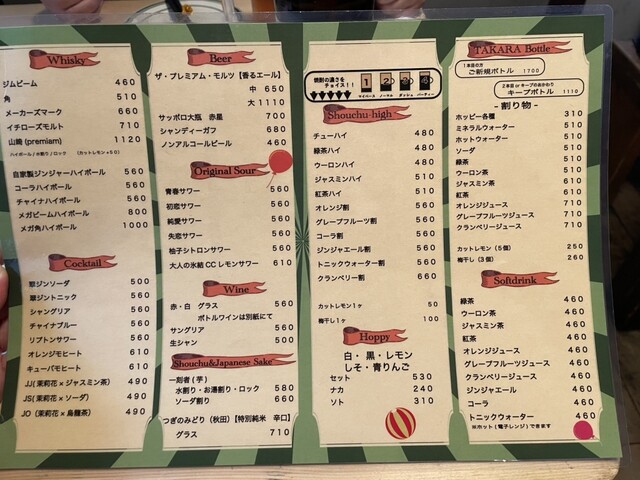 Whisky
ジムビーム 460
角 510
メーカーズマーク 660
イチローズモルト 710
山崎 (premiam) 1120
ハイボール / 水割り / ロック (カットレモン+50)
自家製ジンジャーハイボール 560
コーラハイボール 560
チャイナハイボール 560
メガビームハイボール 800
メガ角ハイボール 1000
Cocktail
翠ジンソーダ 500
翠ジントニック 560
シャングリア 560
チャイナブルー 560
リプトンサワー 560
オレンジモヒート 610
キューバモヒート 610
JJ(茉莉花×ジャスミン茶) 490
JS(茉莉花×ソーダ) 490
JO (茉莉花×烏龍茶) 490
Beer
ザ・プレミアム・モルツ【香るエール】
中 650
大 1110
サッポロ大瓶 赤星 700
シャンディーガフ 680
ノンアルコールビール 460
Original Sour
青春サワー 560
初恋サワー 560
純愛サワー 560
失恋サワー 560
柚子シトロンサワー 560
大人の氷結CCレモンサワー 610
Wine
赤・白 グラス 560
ボトルワインは別紙にて
サングリア 560
生シャン 500
Shouchu&Japanese Sake
一刻者 (芋)
水割り・お湯割り・ロック 580
ソーダ割り 660
つぎのみどり (秋田)【特別純米 辛口】
グラス 710
焼酎の濃さを
チョイス!!
マイペース ノーマル ダッシュ パーティー
Shouchu-high
チューハイ 480
緑茶ハイ 480
ウーロンハイ 480
ジャスミンハイ 510
紅茶ハイ 510
オレンジ割 560
グレープフルーツ割 560
コーラ割 560
ジンジャエール割 560
トニックウォーター割 560
クランベリー割 660
カットレモン1ヶ 50
梅干し1ヶ 100
Hoppy
白・黒・レモン
しそ・青りんご
セット 530
ナカ 240
ソト 310
TAKARA Bottle
1本目の方
ご新規ボトル 1700
2本目 or キープのおかわり
キープボトル 1110
- 割り物 -
ホッピー各種 310
ミネラルウォーター 510
ホットウォーター 510
ソーダ 510
緑茶 510
ウーロン茶 510
ジャスミン茶 610
紅茶 610
オレンジジュース 710
グレープフルーツジュース 710
クランベリージュース 710
カットレモン (5個) 250
梅干し (3個) 260
Softdrink
緑茶 460
ウーロン茶 460
ジャスミン茶 460
紅茶 460
オレンジジュース 460
グレープフルーツジュース 460
クランベリージュース 460
ジンジャエール 460
コーラ 460
トニックウォーター 460
※ホット(電子レンジ)できます